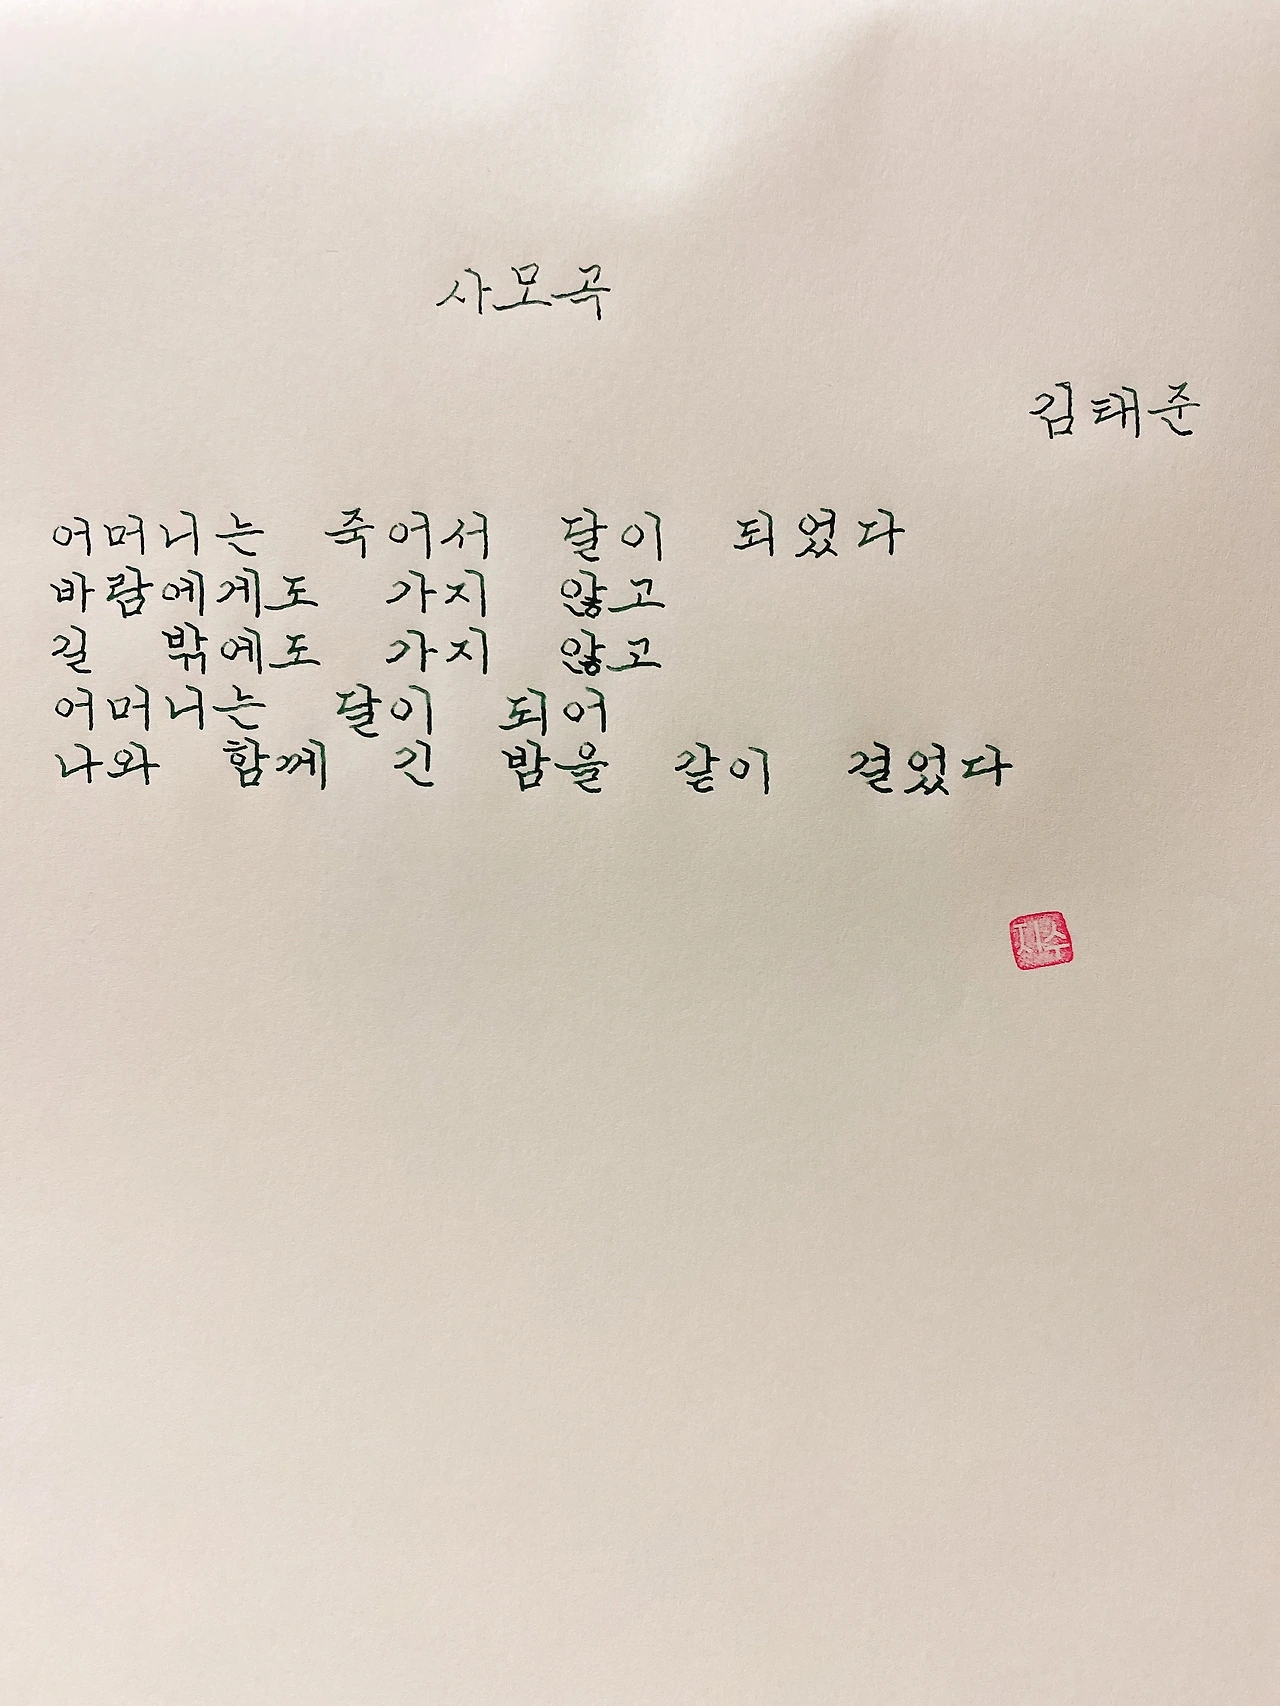 사모곡
김태준
어머니는 죽어서 달이 되었다
바람에게도 가지 않고
길 밖에도 가지 않고
어머니는 달이 되어
나와 함께 긴 밤을 같이 걸었다